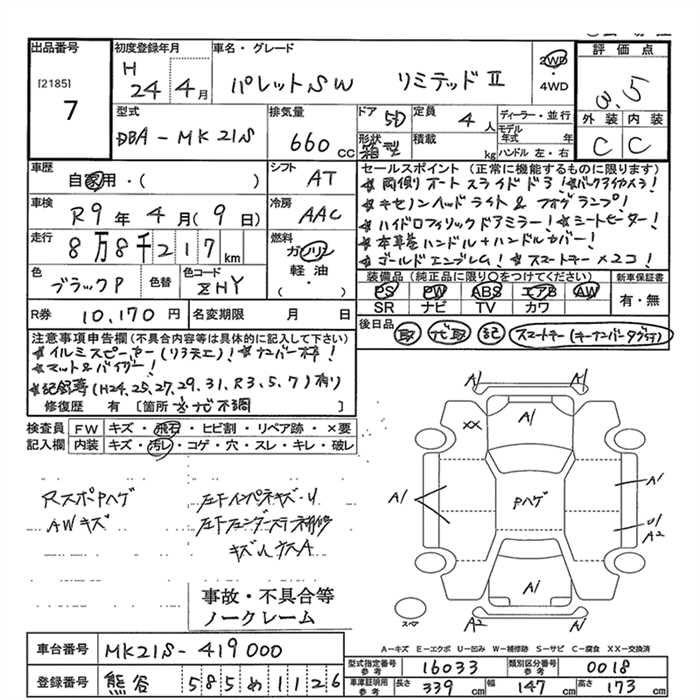 出品番号 初度登録年月 車名・グレード 評価点
[2185] H 24年 4月 パレットSW リミテッドⅡ 2WD・4WD 3.5
7 型式 排気量 ドア 5D 定員 4人 ディーラー・並行 外装 内装
DBA-MK21S 660cc 形状 箱型 積載 kg モデル年式 年 ハンドル 左・右 C C
車歴 自家用・( ) シフト AT セールスポイント(正常に機能するものに限ります)
★両側オートスライドドア!★バックアイカメラ!
車検 R9年4月(9日) 冷房 AAC ★キセノンヘッドライト&フォグランプ!
★ハイドロフィリックドアミラー!★シートヒーター!
走行 8万8千217km 燃料 ガソリン 軽油・( ) ★本革巻ハンドル+ハンドルカバー!
★ゴールドエンブレム!★スマートキー×2コ!
色 ブラックP 色替 色コード ZHY 装備品(純正品に限り○をつけてください) 新車保証書
PS PW ABS エアB AW 有・無
SR ナビ TV カワ
R券 10,170円 名変期限 月 日 後日品 取 代取 記 スマートキー(キーナンバータグ付)
注意事項申告欄(不具合内容等は具体的に記入して下さい)
★イルミスピーカー(リヤ天エ)!★ナンバー枠!
★マット&バイザー!
★記録簿(H24,25,27,29,31,R3,5,7)有り
修復歴 有 [箇所 ☆ナビ不調 ]
検査員 FW キズ・飛石・ヒビ割・リペア跡・×要
記入欄 内装 キズ・汚レ・コゲ・穴・スレ・キレ・破レ
RスポPハゲ 左下インパネキズ・U
AWキズ 左下フェンダーステー補修
キズUナスA
A1 A1
XX A1
A1 Pハゲ A1
U1
A2
A1
スペア A2 A1
事故・不具合等
ノークレーム
A-キズ E-エクボ U-凹み W-補修跡 S-サビ C-腐食 XX-交換済
車台番号 MK21S-419000
型式指定番号 参考 16033 類別区分番号 参考 0018
登録番号 熊谷 585め1126
車庫証明用 参考 長さ 339cm 幅 147cm 高さ 173cm